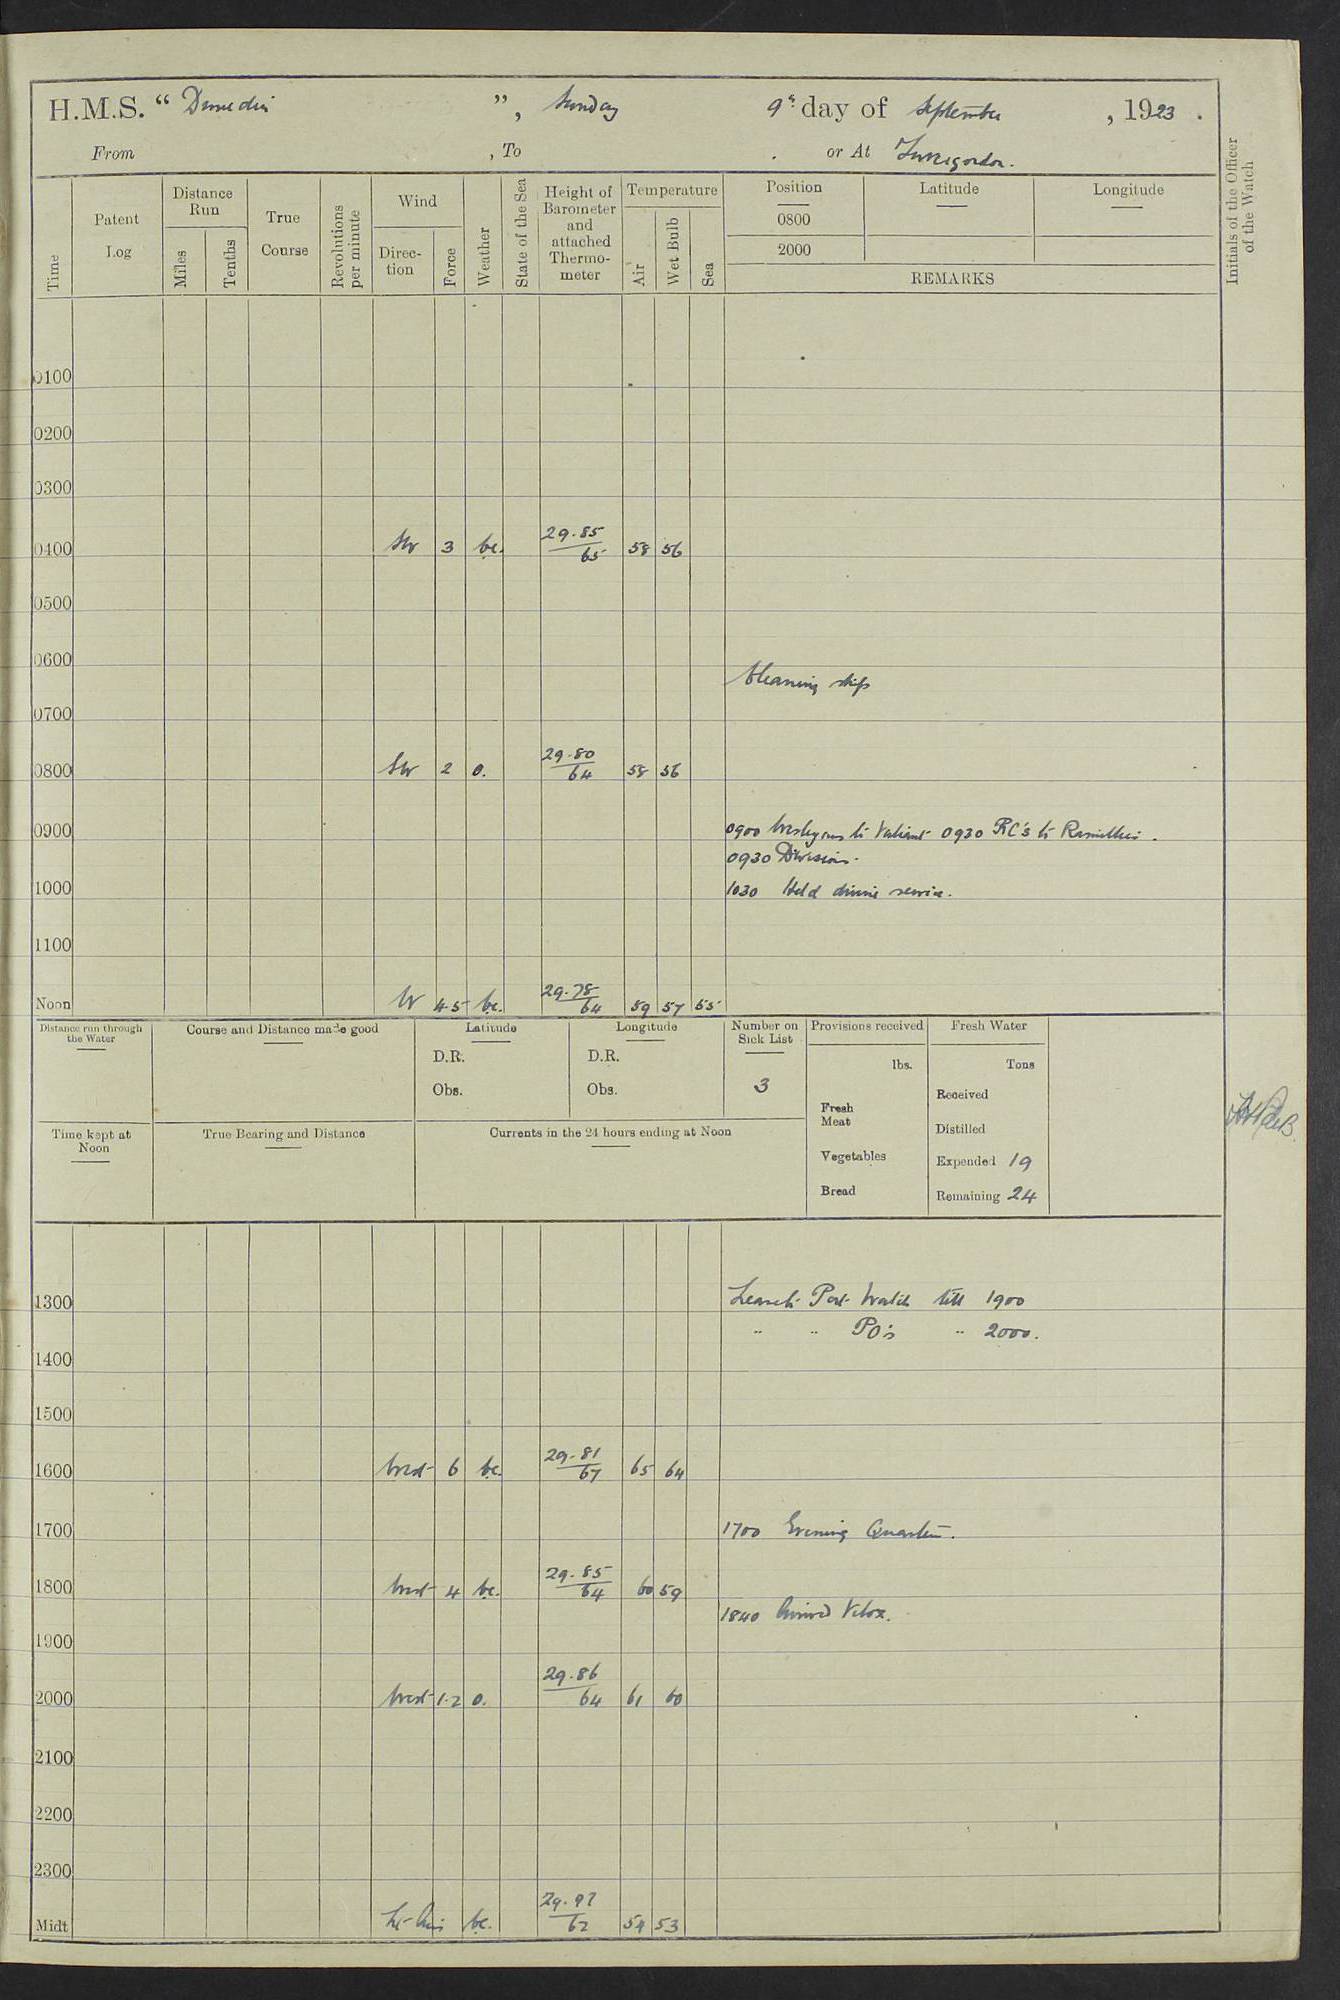 H.M.S. “ Dunedin ”, Sunday 9th day of September , 1923 .
From , To . or At Invergordon.
Time
Patent Log
Distance Run
Miles
Tenths
True Course
Revolutions per minute
Wind
Direc- tion
Force
Weather
State of the Sea
Height of Barometer and attached Thermo- meter
Temperature
Air
Wet Bulb
Sea
Position Latitude Longitude
0800
2000
REMARKS
Initials of the Officer of the Watch
0100
0200
0300
0400 SW 3 bc. 29.85/65 58 56
0500
0600
Cleaning ship
0700
0800 SW 2 o. 29.80/64 58 56
0900 0900 Wesleyans to Valiant 0930 RC's to Ramillies.
0930 Division.
1000 1030 Held divine service.
1100
Noon W 4-5 bc. 29.78/64 59 57 55
Distance run through the Water
Course and Distance made good
Latitude
D.R.
Obs.
Longitude
D.R.
Obs.
Number on Sick List
3
Provisions received
lbs.
Fresh Meat
Vegetables
Bread
Fresh Water
Tons
Received
Distilled
Expended 19
Remaining 24
Time kept at Noon
True Bearing and Distance
Currents in the 24 hours ending at Noon
1300 Leave to Port Watch till 1900
" " PO's " 2000.
1400
1500
1600 West 6 bc. 29.81/67 65 64
1700 1700 Evening Quarters.
1800 West 4 bc. 29.85/64 60 59
1840 Arrived Velox.
1900
2000 West 1-2 o. 29.86/64 61 60
2100
2200
2300
Midt Lt Airs bc. 29.92/62 54 53